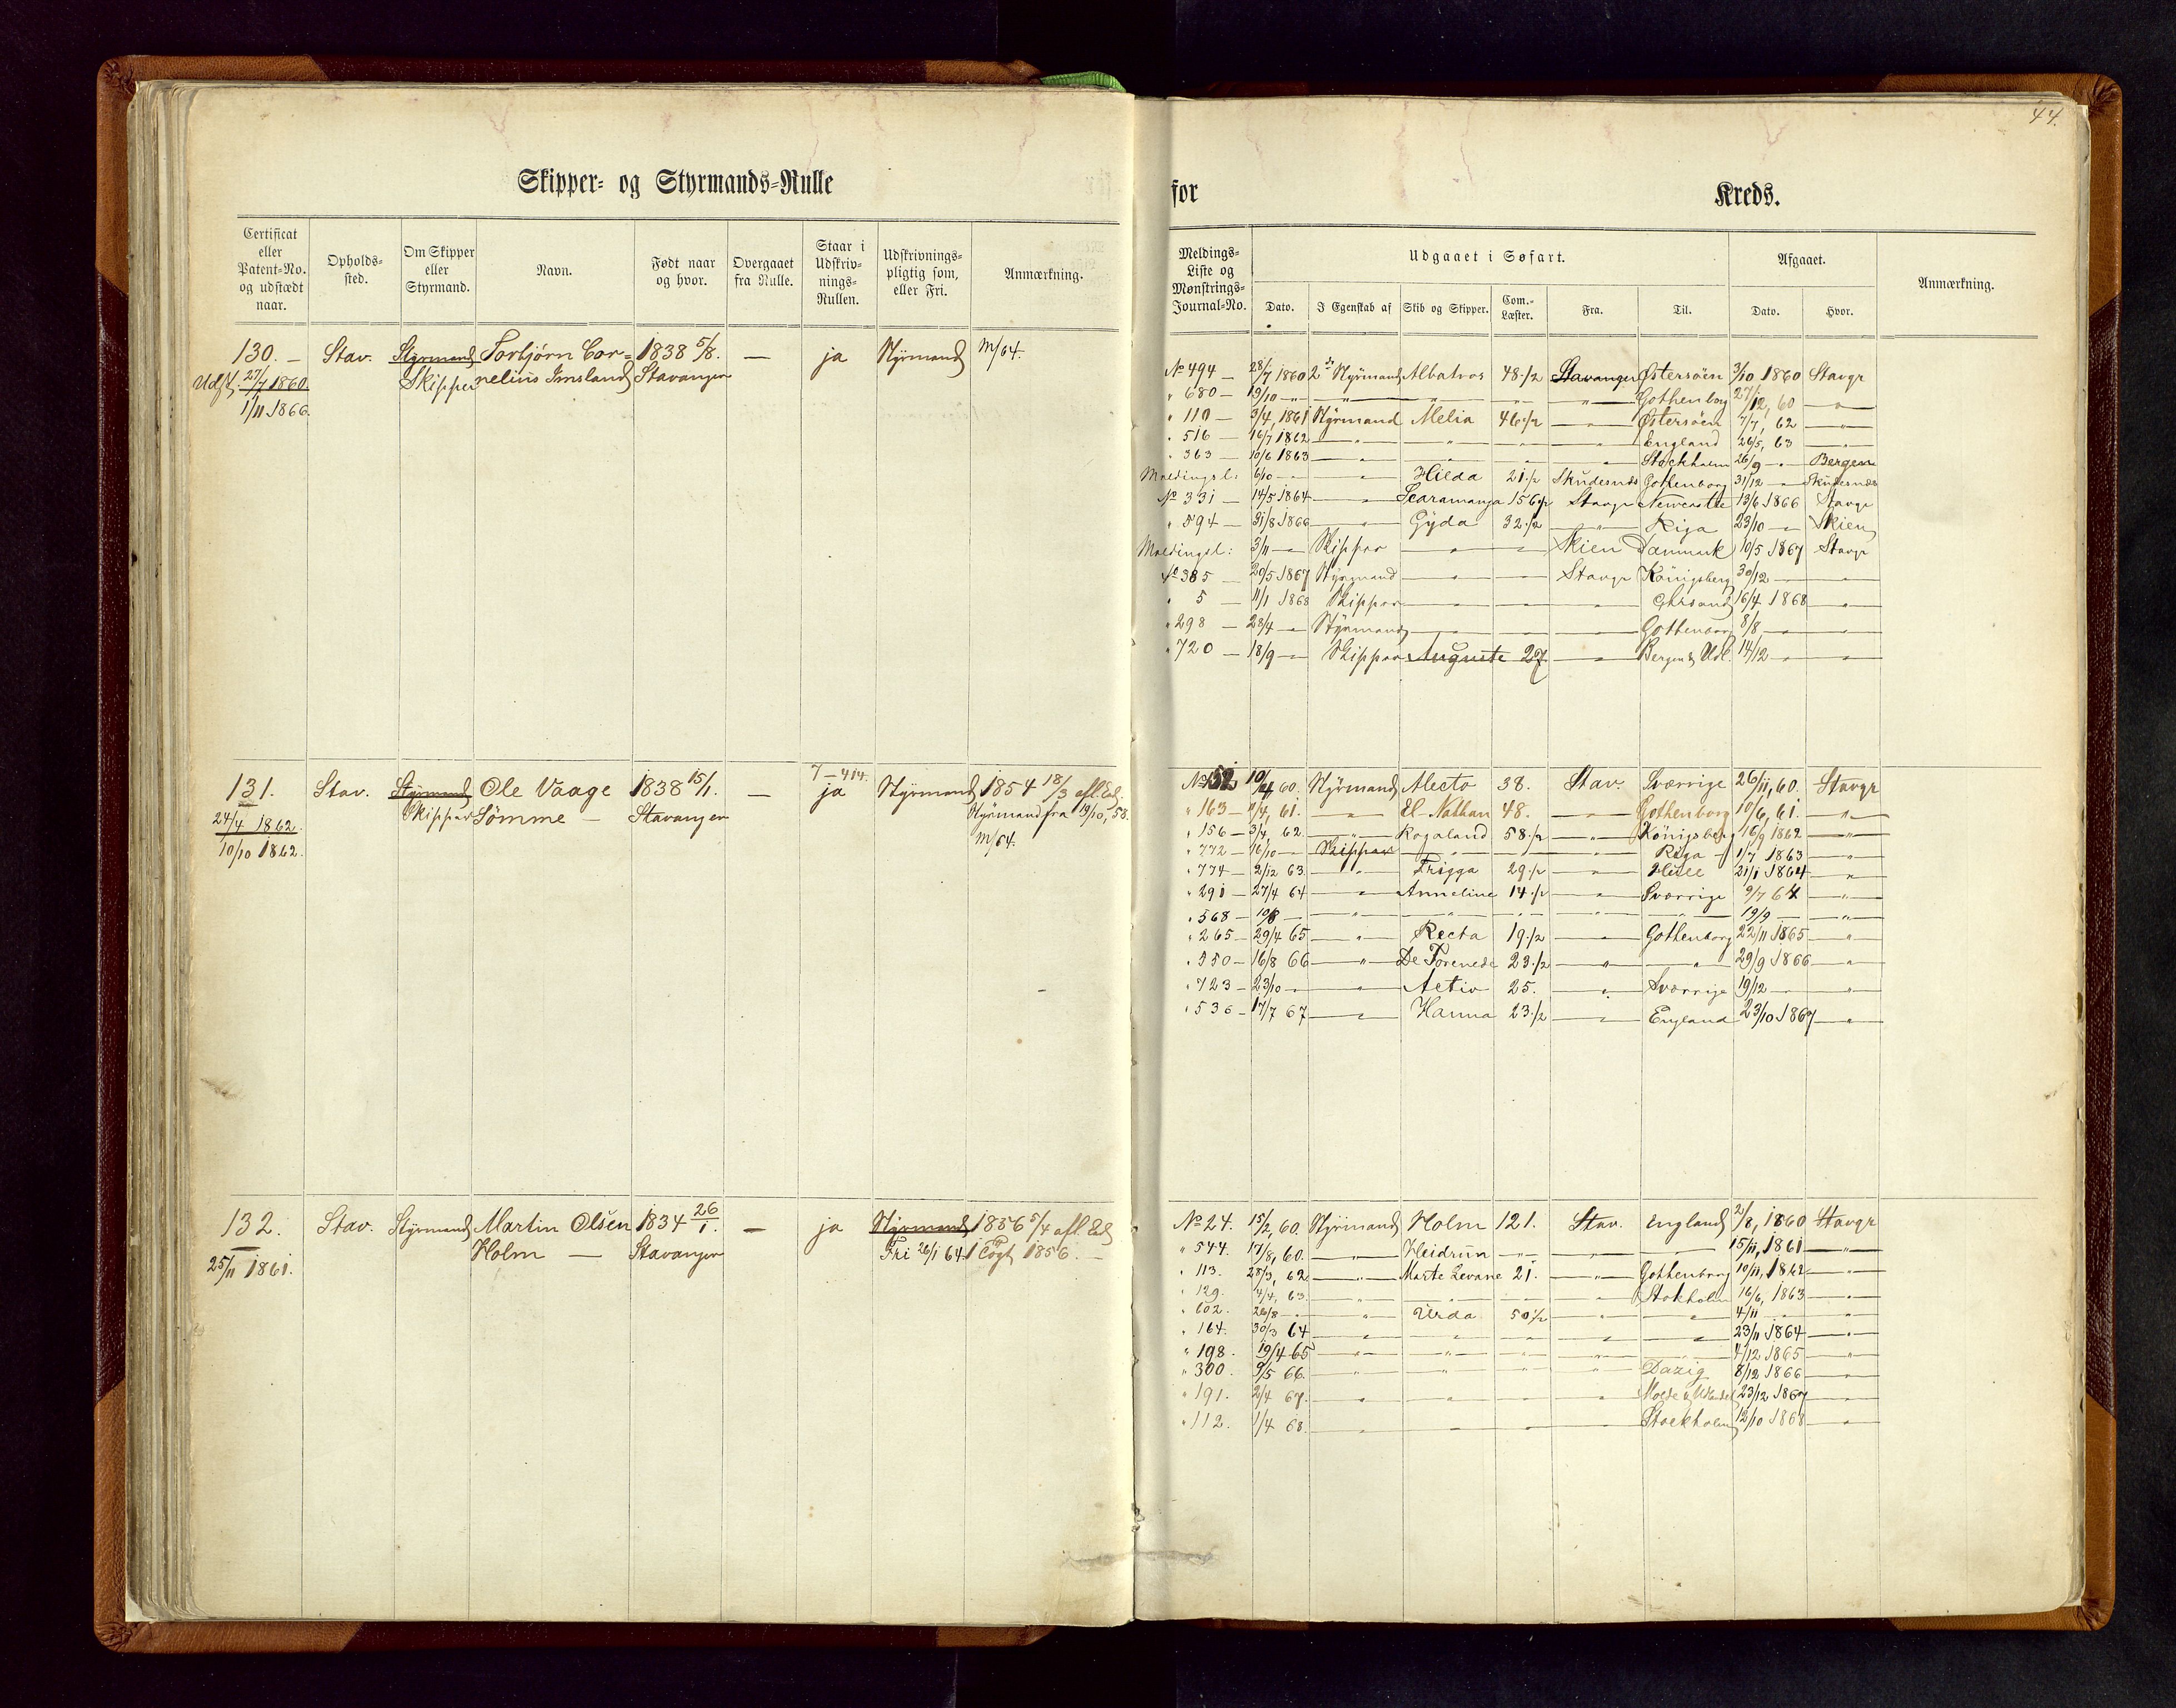 44.
Skipper- og Styrmands-Rulle
for Kreds.
Certificat eller Patent-No. og udstædt naar. Opholds-sted. Om Skipper eller Styrmand. Navn. Født naar og hvor. Overgaaet fra Rulle. Staar i Udskriv-nings-Rullen. Udskrivnings-pligtig som, eller Fri. Anmærkning.
Meldings-Liste og Mønstrings-Journal-No. Udgaaet i Søfart. Afgaaet. Anmærkning.
Dato. I Egenskab af Skib og Skipper. Com.-Læster. Fra. Til. Dato. Hvor.
130. — Stav. Styrmand Torbjørn Cor= 1838 5/8. — ja Styrmand M/64.
Udst. 27/7 1860. Skipper nelius Imsland Stavanger
1/11 1866.
No 494 — 28/7 1860 2de Styrmand Albatros 48 1/2 Stavanger Østersöen 3/10 1860 Stavgr
" 680 — 19/10 — " — " — " — " — Gothenborg 27/12, 60 — " —
" 110 — 3/4, 1861 Styrmand Melia 46 1/2 — " — Østersöen 7/7, 62 — " —
" 516 — 16/7 1862 — " — " — " — England 26/5, 63 — " —
" 363 — 10/6 1863 — " — " — " — Stockholm 26/9 — " — Bergen
Meldingsl: 6/10 — " — " — Hilda 21 1/2 Skudesnæs Gothenborg 31/12 — " Skudesnæs
No 331 — 14/5 1864 — " — Scaramanga 156 1/2 Stavgr Newcastle 13/6 1866 Stavgr
" 594 — 31/8 1866 — " — Gyda 32 1/2 — " — Riga 23/10 — " — Skien
Meldingsl: 3/11 — " — Skipper — " — Skien Danmark 10/5 1867 Stavgr
No 385 — 20/5 1867 Styrmand — " — Stavgr Königsberg 30/12 — " —
" 5 — 11/1 1868 Skipper — " — " — Chrsand 16/4 1868 — " —
" 298 — 28/4 — " Styrmand — " — " — Gothenborg 8/8 — " —
" 720 — 18/9 — " Skipper Auguste 27 — " — Bergen & Udl. 14/12 — " —
131. Stav. Styrmand Ole Vaage 1838 15/1. — 7 — 414. ja Styrmand 1854 18/3 afl. Ed.
24/4 1862. Skipper Sömme — Stavanger Styrmand fra 19/10, 58.
10/10 1862. M/64.
10/4 60. Styrmand Alecto 38. Stav. Sværrige 26/11, 60. Stavgr
" 163 — 11/4, 61. — " — El-Nathan 48. — " — Gothenborg 10/6, 61. — " —
" 156 — 3/4, 62. — " — Rogaland 58 1/2 — " — Königsberg 16/9 1862 — " —
" 772 — 16/10 — Skipper — " — " — Riga 1/7 1863 — " —
" 774 — 2/12 63. — " — Frigga 29 1/2 — " — Hull 21/1 1864 — " —
" 291 — 27/4 64 — " — Anneline 14 1/2 — " — Sværrige 9/7 64 — " —
" 568 — 10/8 — " — " — " — " — 19/9 — " —
" 265 — 29/4 65 — " — Recta 19 1/2 — " — Gothenborg 22/11 1865 — " —
" 550 — 16/8 66 — " — De Forenede 23 1/2 — " — " — 29/9 1866 — " —
" 723 — 23/10 — " — Activ 25. — " — Sværrige 19/12 — " —
" 536 — 17/7 67 — " — Hanna 23 1/2 — " — England 23/10 1867 — " —
132. Stav. Styrmand Martin Olsen 1834 26/1. — ja Styrmand 1856 5/4 afl. Ed
25/11 1861. Holm — Stavanger Fri 26/1 64. 1 Togt 1856. —
No 24. 15/2, 60. Styrmand Holm 121. Stav. England 2/8, 1860 Stavgr
" 544. 17/8, 60. — " — Heidrun — " — " — 15/11, 1861 — " —
" 113. 28/3, 62 — " — 21. — " — Gothenborg 10/11, 1862 — " —
" 129. 4/4, 63. — " — " — " — Stokholm 16/6, 1863 — " —
" 602. 26/8 — " — Urda 50 1/2 — " — " — 4/11 — " —
" 164. 30/3 64 — " — " — " — " — 23/11 1864 — " —
" 198. 19/4 65 — " — " — " — " — 4/12 1865 — " —
" 300. 9/5 66. — " — " — " — Dazig 8/12 1866 — " —
" 191. 2/4 67. — " — " — " — 23/12 1867 — " —
" 112. 1/4 68. — " — " — " — Stockholm 12/10 1868 — " —